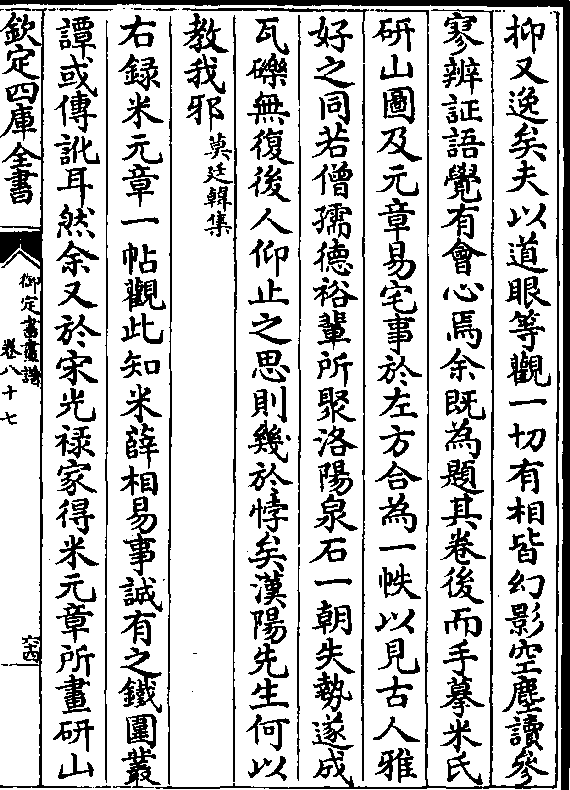 抑又逸矣夫以道眼等觀一切有相皆幻影空塵讀參
寥辨証語覺有會心焉余既為題其卷後而手摹米氏
研山圖及元章易宅事於左方合為一帙以見古人雅
好之同若僧孺德裕輩所聚洛陽泉石一朝失勢遂成
瓦礫無復後人仰止之思則幾於悖矣漢陽先生何以
教我邪莫廷韓集
右録米元章一帖觀此知米薛相易事誠有之鐵圍叢
譚或傳訛耳然余又於宋光禄家得米元章所畫研山
欽定四庫全書
御定書畫譜
卷八十七
六四